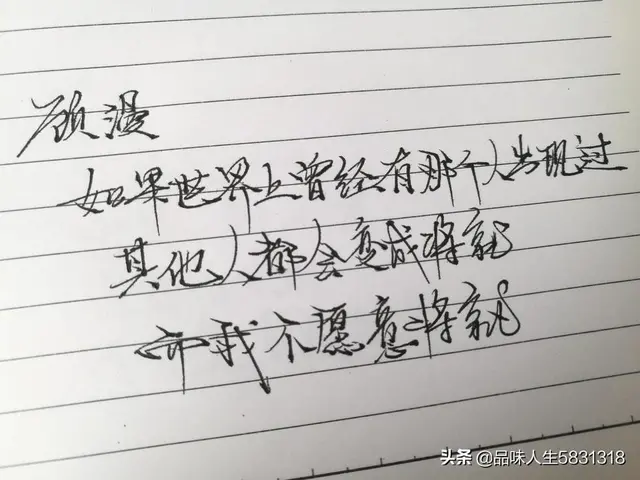 顾漫
如果世界上曾经有那个人出现过
其他人都会变成将就
而我不愿意将就
头条 @品味人生5831318